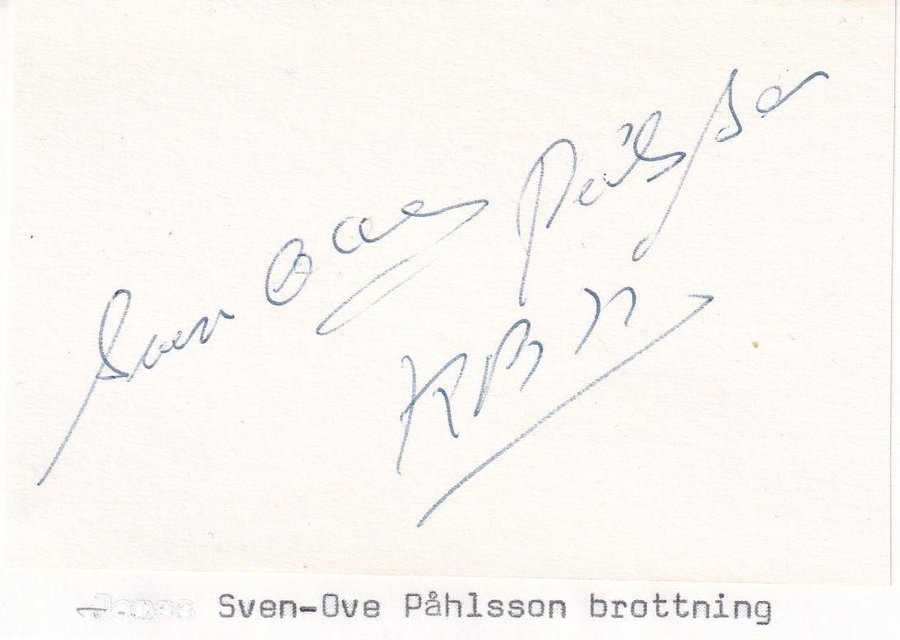 Sven Ove Påhlsson
KBN
Sven-Ove Påhlsson brottning